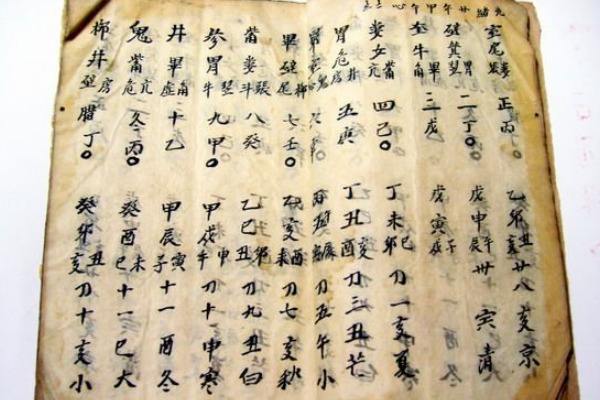 室尾 正丙。 乙卯丑亥廿八亥京
壁箕胃 二丁。 戊申午辰廿 寅清
奎牛畢角 三戊 戊寅子
婁女觜亢 四己。 丁未巳卯刀一亥夏
胃危井房 五庚 丁丑亥酉刀三丑芒
刀五午小
畢壁柳尾 七壬。 亥酉未刀七亥秋
觜婁張斗 八癸 乙巳卯丑刀九丑白
參胃翌牛 九甲。 甲戌申午刀十申寒
井畢角虛 十乙 甲辰寅子十一酉冬
鬼觜亢危 冬丙。 癸酉未巳十一巳大
柳井房壁 臘丁。 癸卯丑亥刀十亥小